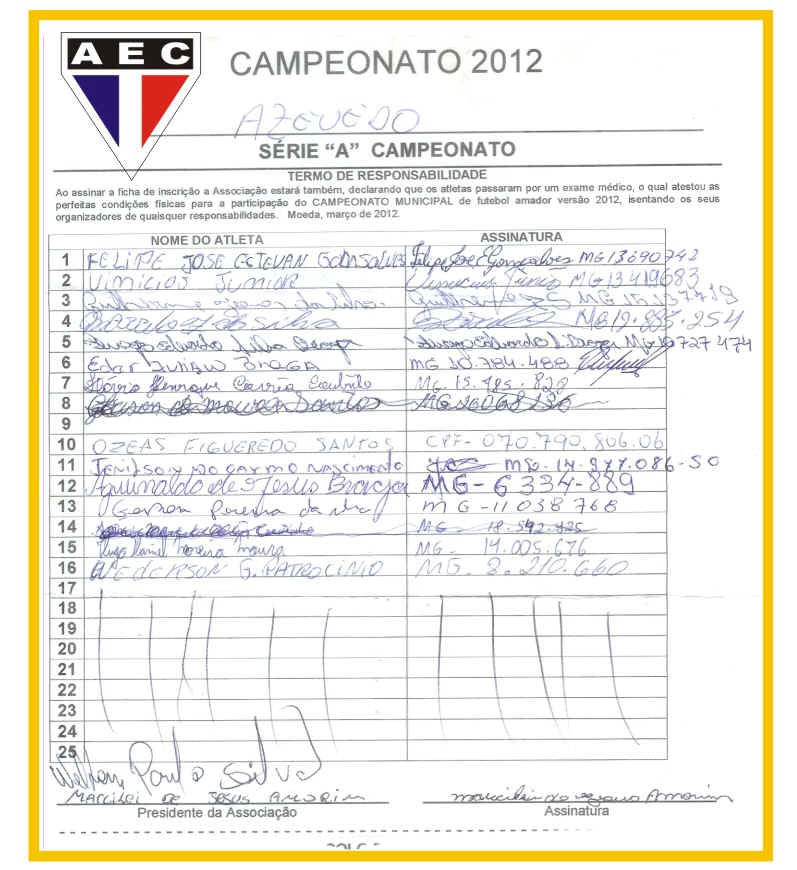 AEC
CAMPEONATO 2012
AZEVEDO
SÉRIE “A” CAMPEONATO
TERMO DE RESPONSABILIDADE
Ao assinar a ficha de inscrição a Associação estará também, declarando que os atletas passaram por um exame médico, o qual atestou as
perfeitas condições físicas para a participação do CAMPEONATO MUNICIPAL de futebol amador versão 2012, isentando os seus
organizadores de quaisquer responsabilidades. Moeda, março de 2012.
NOME DO ATLETA ASSINATURA
1 FELIPE JOSE ESTEVAN GONSALVES Filipe José E Gonçalves MG13690742
2 VINICIOS JUNIOR MG13419683
3 MG 15.137719
4 da silva MG12.885.254
5 Eduardo MG10727474
6 Edar Junior BRAGA MG 10.784.488
7 Flávio Henrique Corrêa Coutinho MG. 15.785.820
8
9
10 OZEAS FIGUEREDO SANTOS CPF- 070.790.806.06
11 JENILSON DO CARMO NASCIMENTO MG-14.977.086-SO
12 Aguinaldo de Jesus Braga MG-6334-889
13 Gerson Pereira da silva MG-11038768
14 MG 18.592.825
15 Hugo Daniel Moreira Moura MG- 14.005.676
16 WEDERSON G. PATROCINIO MG. 8.210.660
17
18
19
20
21
22
23
24
25
Paulo Silva
MARCILEI DE JESUS AMORIM
Presidente da Associação Assinatura